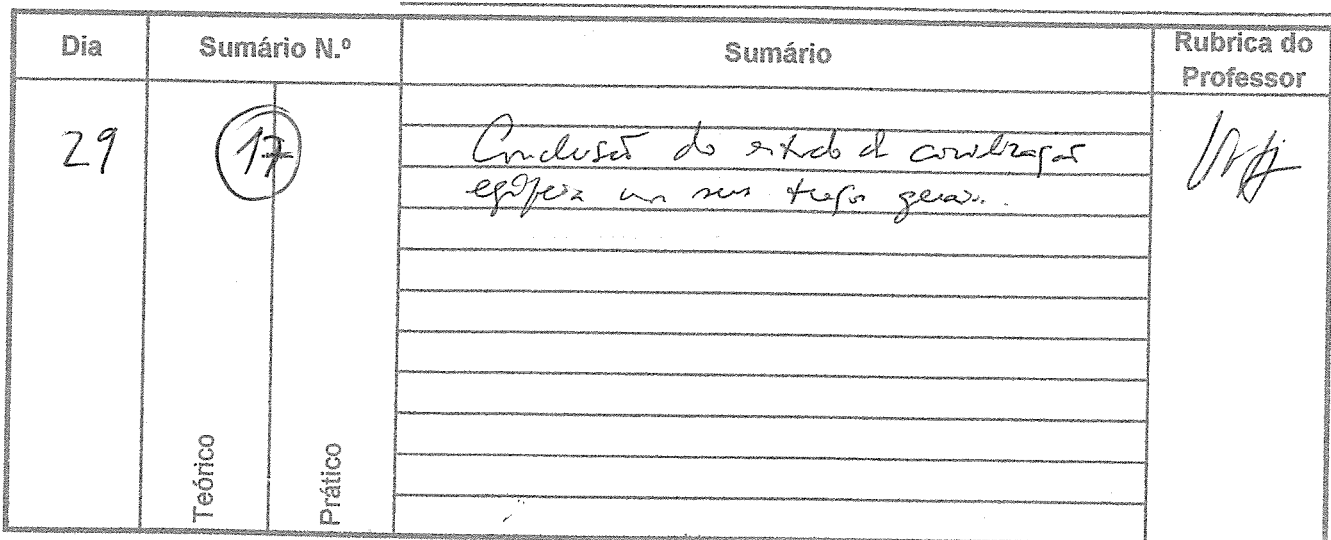 Dia Sumário N.º Sumário Rubrica do Professor
29 17 Conclusão do estudo da civilização
egípcia nos seus traços gerais.
Teórico Prático